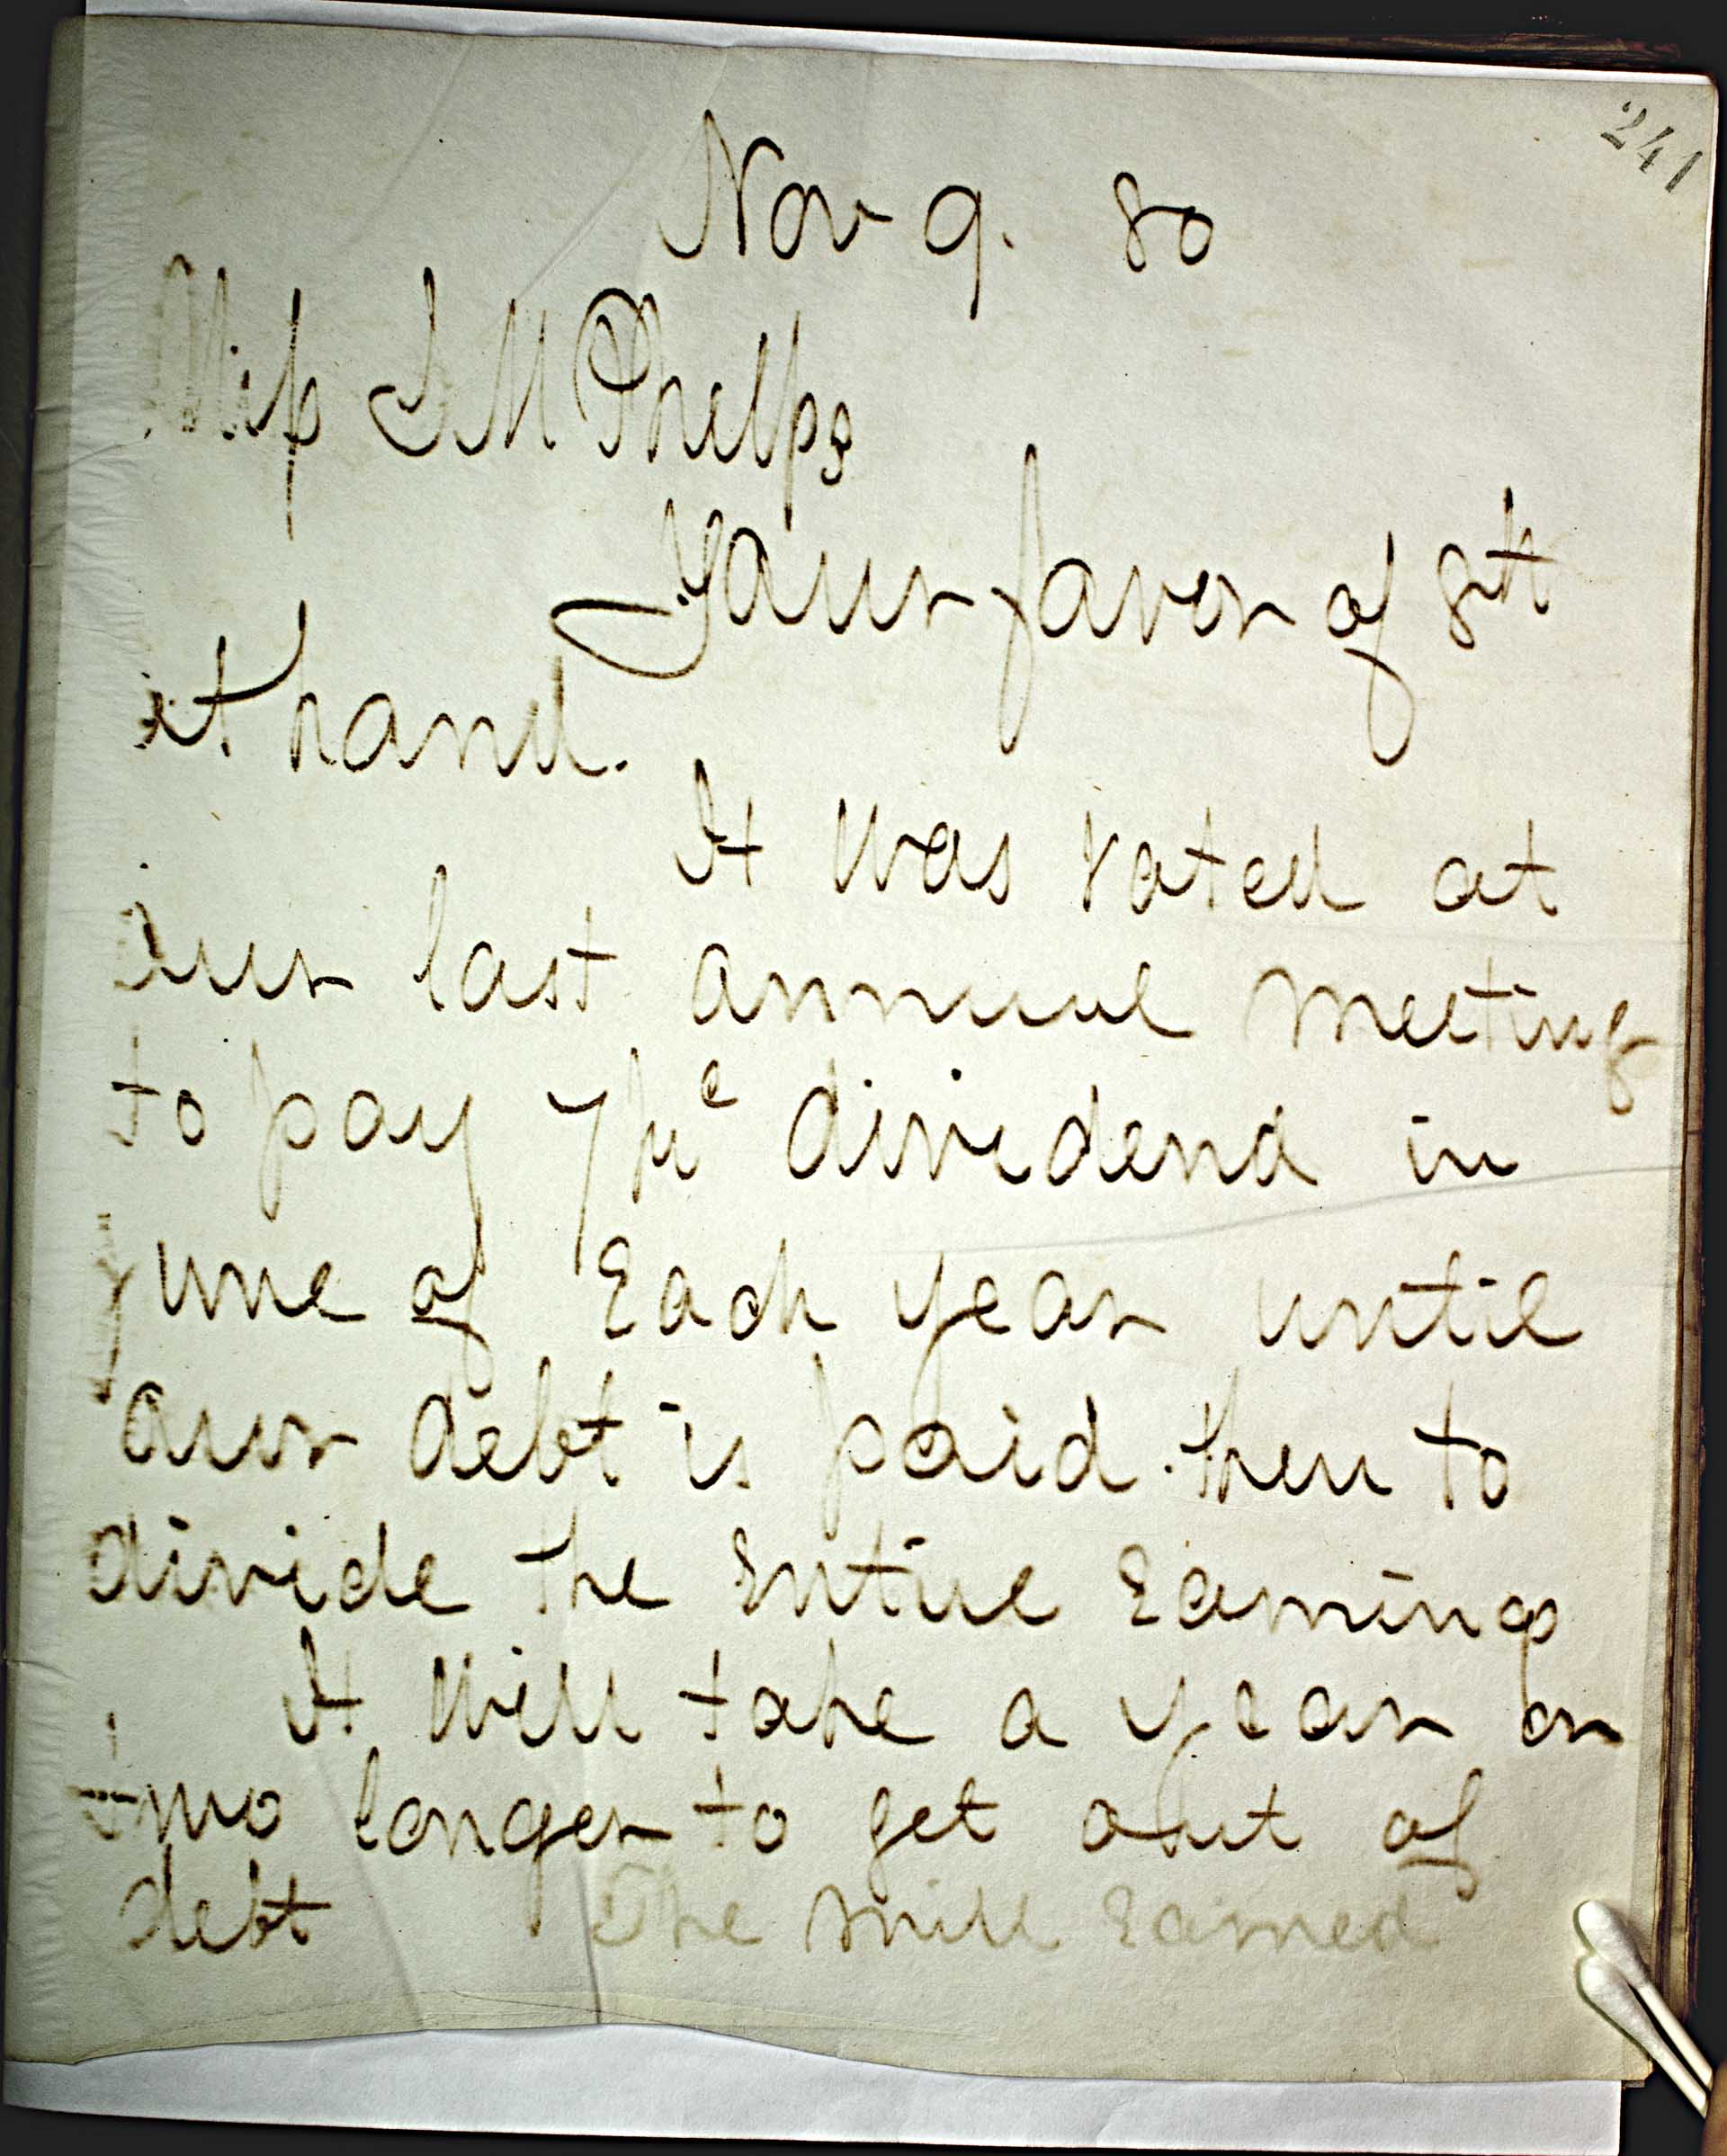 241
Nov 9. 80
Miss S M Phelps
Your favor of 8th
at hand.
It was voted at
our last annual meeting
to pay 7 pr c dividend in
June of Each year until
our debt is paid. then to
divide the Entire Earnings
It will take a year or
two longer to get out of
debt The mill Earned